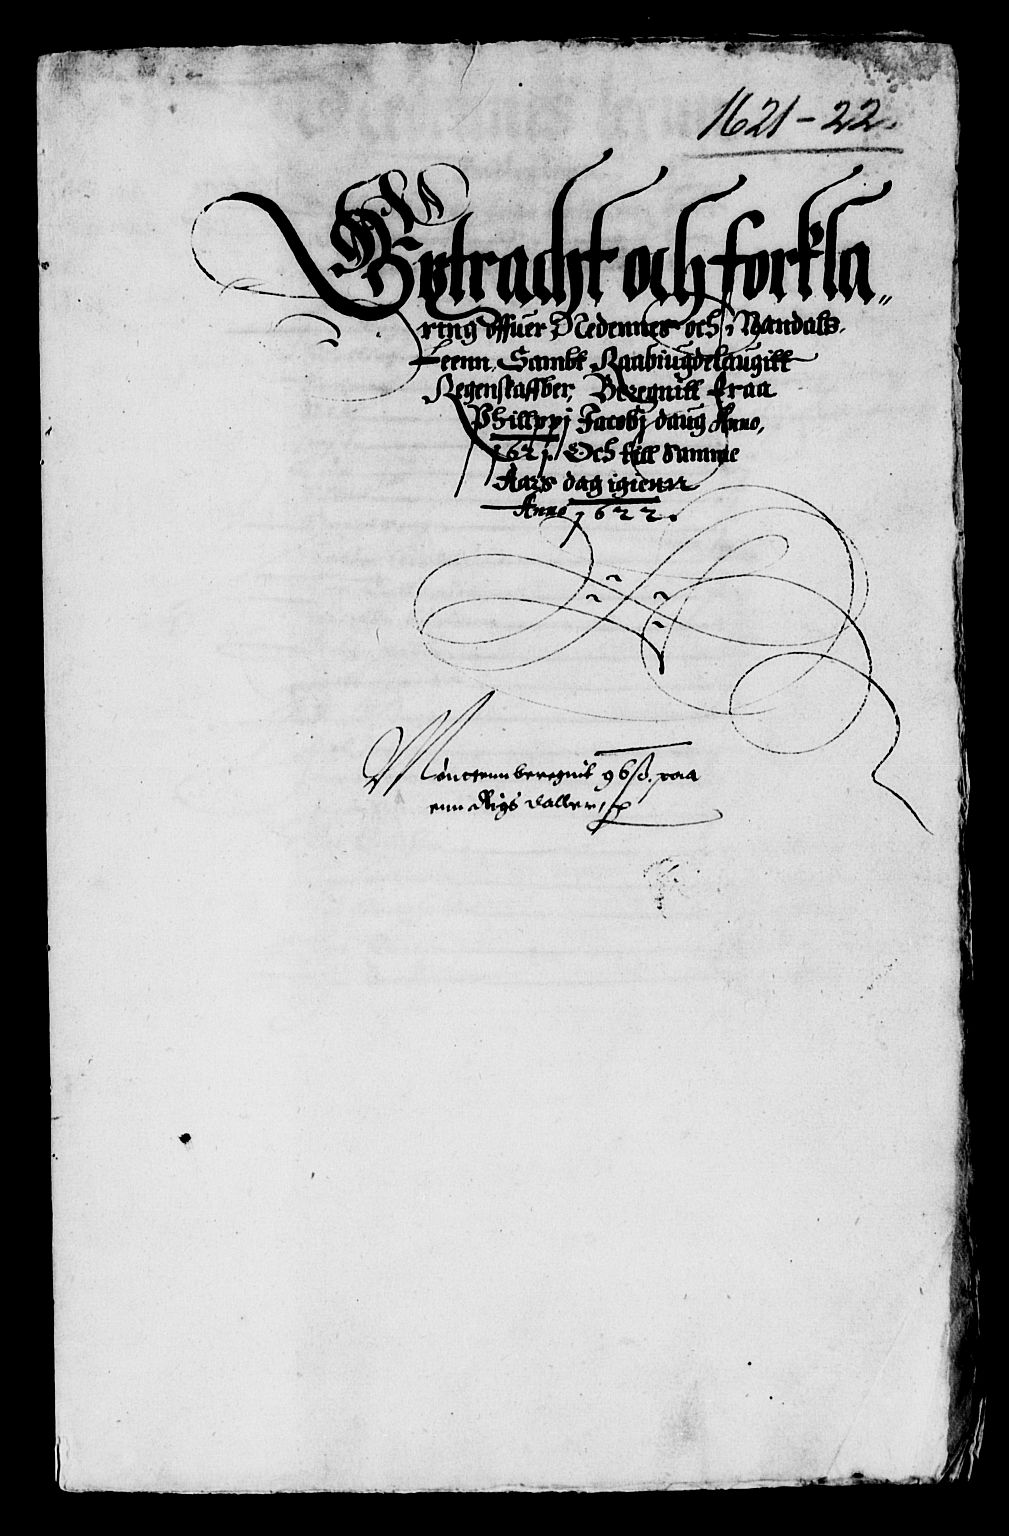 1621-22.
Vdtracht och forkla„
ring offuer Nedennes och Mandals
Leenn, Sambt Raabiugdelaugitt
Regenskaffber, Beregnitt fraa
Philippj Jacobj daug Anno,
1621. Och till Samme
Aars dag igienn
Anno 1622.
Mönttenn beregnit 96 ß. paa
enn Rigs daller,